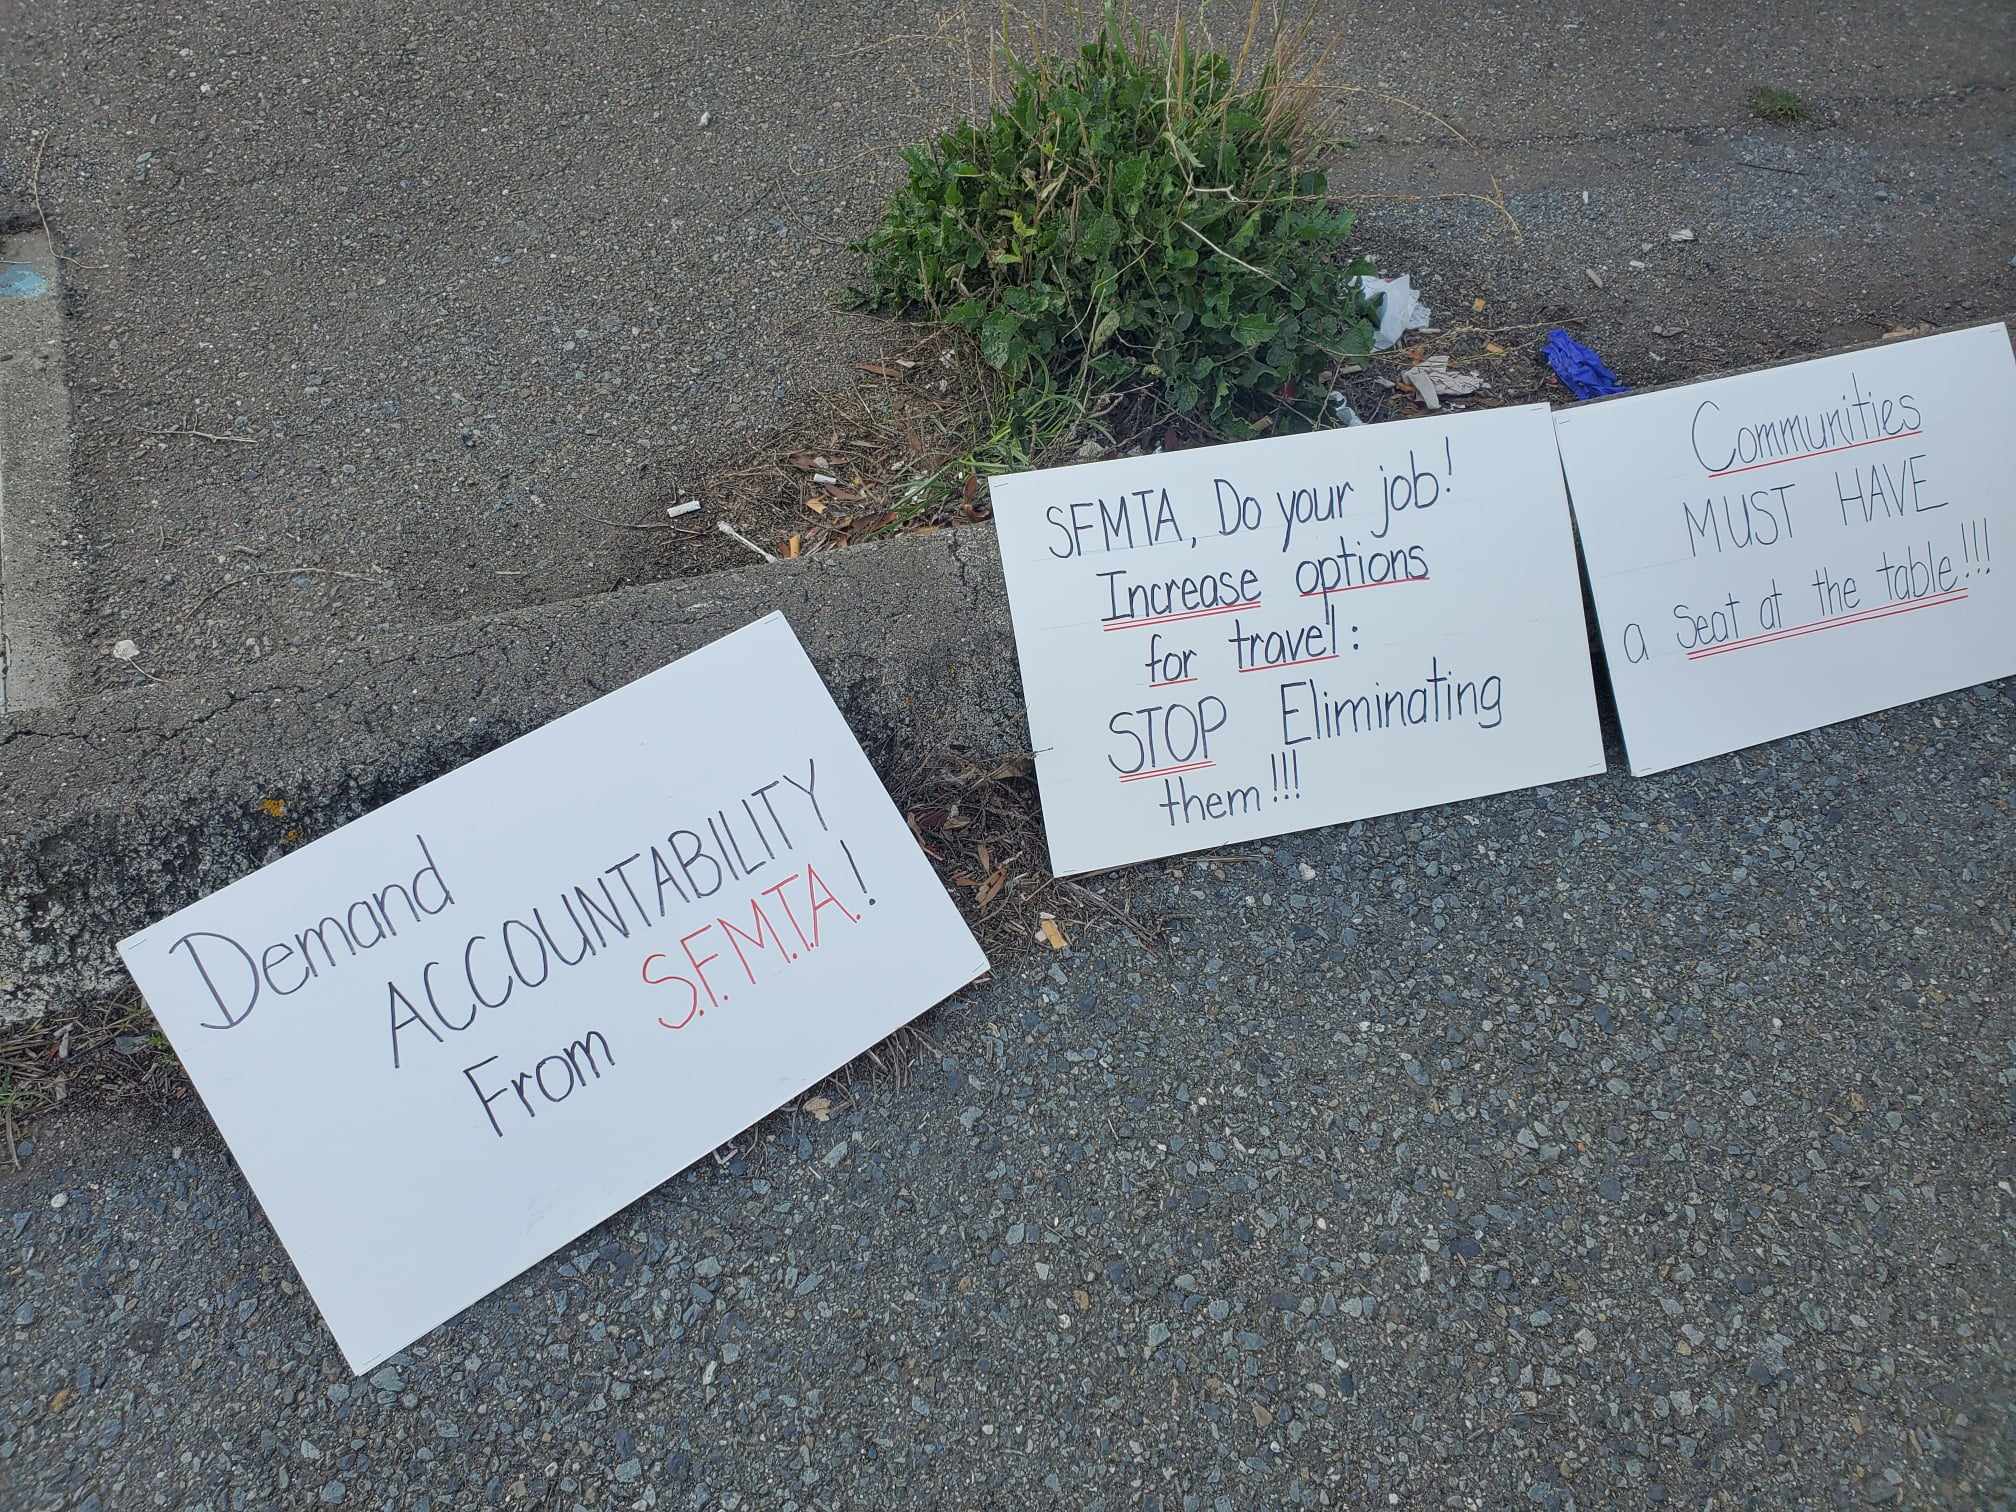 Demand
ACCOUNTABILITY
From S.F.M.T.A.!
SFMTA, Do your job!
Increase options
for travel:
STOP Eliminating
them!!!
Communities
MUST HAVE
a seat at the table!!!